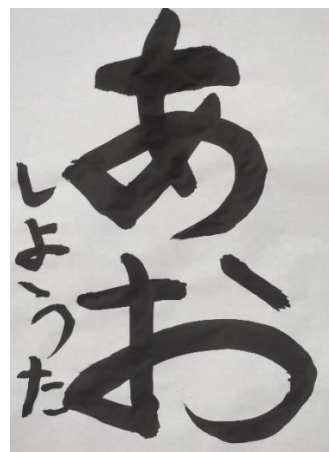 あお
しょうた